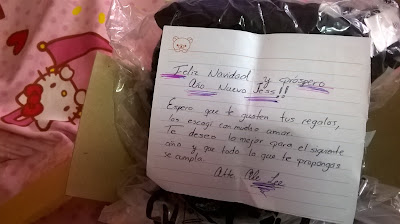 Feliz Navidad y próspero
Año Nuevo Jess!!
Espero que te gusten tus regalos,
los escogí con mucho amor.
Te deseo lo mejor para el siguiente
año y que todo lo que te propongas
se cumpla.
Atte